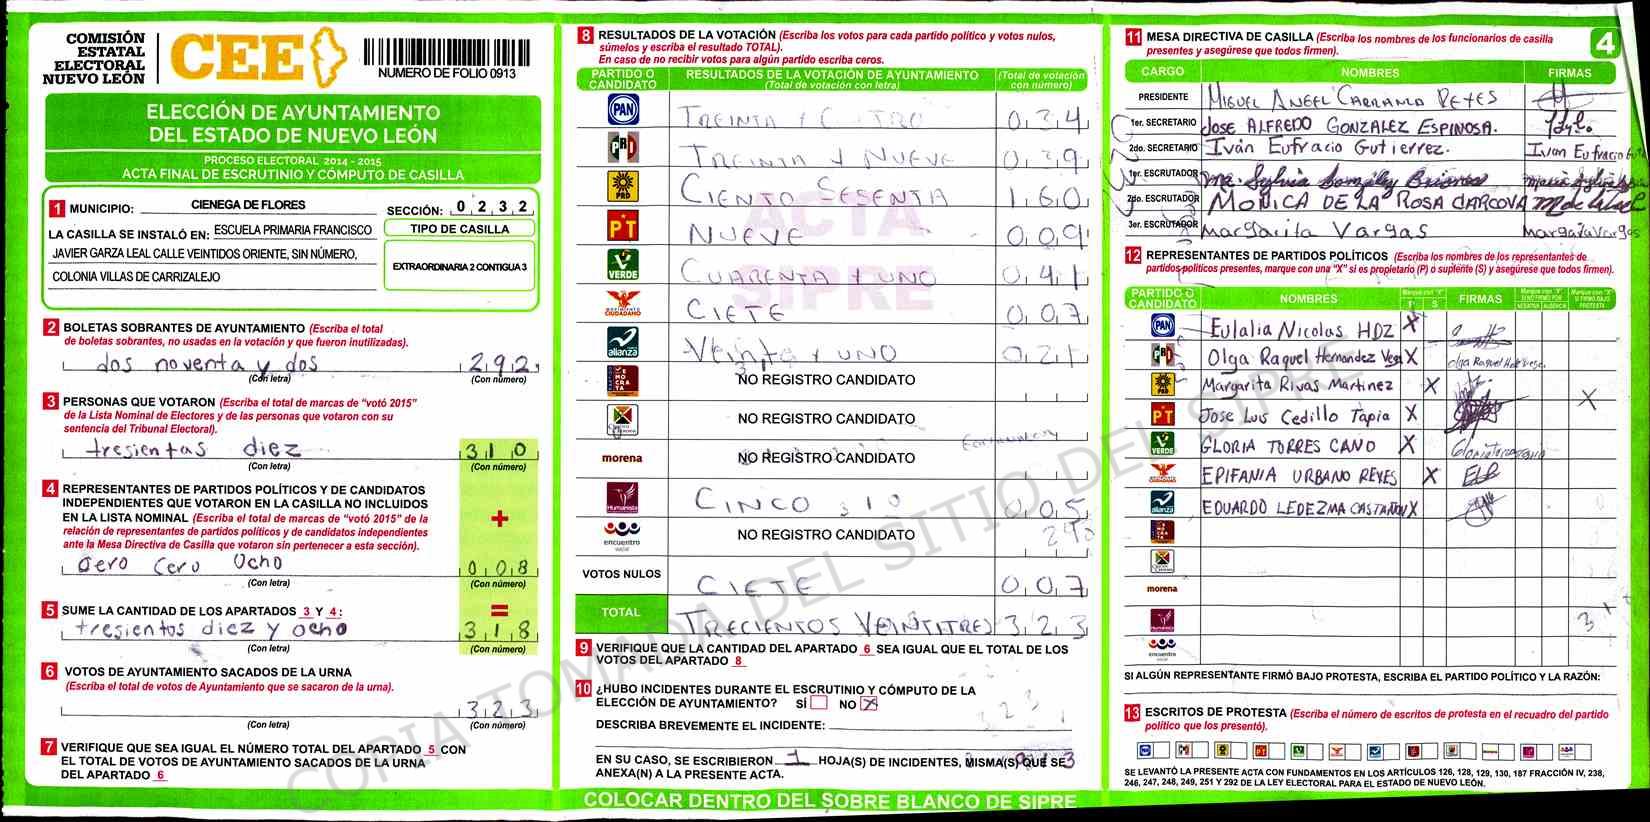 COMISIÓN
ESTATAL
ELECTORAL
NUEVO LEÓN
CEE
NUMERO DE FOLIO 0913
ELECCIÓN DE AYUNTAMIENTO
DEL ESTADO DE NUEVO LEÓN
PROCESO ELECTORAL 2014 - 2015
ACTA FINAL DE ESCRUTINIO Y CÓMPUTO DE CASILLA
1 MUNICIPIO: CIENEGA DE FLORES SECCIÓN: 0 2 3 2
LA CASILLA SE INSTALÓ EN: ESCUELA PRIMARIA FRANCISCO
JAVIER GARZA LEAL CALLE VEINTIDOS ORIENTE, SIN NÚMERO,
COLONIA VILLAS DE CARRIZALEJO
TIPO DE CASILLA
EXTRAORDINARIA 2 CONTIGUA 3
2 BOLETAS SOBRANTES DE AYUNTAMIENTO (Escriba el total
de boletas sobrantes, no usadas en la votación y que fueron inutilizadas).
dos noventa y dos 292
(Con letra) (Con número)
3 PERSONAS QUE VOTARON (Escriba el total de marcas de "votó 2015"
de la Lista Nominal de Electores y de las personas que votaron con su
sentencia del Tribunal Electoral).
tresientas diez 310
(Con letra) (Con número)
4 REPRESENTANTES DE PARTIDOS POLÍTICOS Y DE CANDIDATOS
INDEPENDIENTES QUE VOTARON EN LA CASILLA NO INCLUIDOS
EN LA LISTA NOMINAL (Escriba el total de marcas de "votó 2015" de la
relación de representantes de partidos políticos y de candidatos independientes
ante la Mesa Directiva de Casilla que votaron sin pertenecer a esta sección).
+
Cero Cero Ocho 008
(Con letra) (Con número)
=
5 SUME LA CANTIDAD DE LOS APARTADOS 3 Y 4:
tresientos diez y ocho 318
(Con letra) (Con número)
6 VOTOS DE AYUNTAMIENTO SACADOS DE LA URNA
(Escriba el total de votos de Ayuntamiento que se sacaron de la urna).
323
(Con letra) (Con número)
7 VERIFIQUE QUE SEA IGUAL EL NÚMERO TOTAL DEL APARTADO 5 CON
EL TOTAL DE VOTOS DE AYUNTAMIENTO SACADOS DE LA URNA
DEL APARTADO 6
8 RESULTADOS DE LA VOTACIÓN (Escriba los votos para cada partido político y votos nulos,
súmelos y escriba el resultado TOTAL).
En caso de no recibir votos para algún partido escriba ceros.
PARTIDO O CANDIDATO RESULTADOS DE LA VOTACIÓN DE AYUNTAMIENTO (Total de votación con letra) (Total de votación con número)
PAN TREINTA Y CUATRO 034
PRI TREINTA Y NUEVE 039
PRD CIENTO SESENTA 160
PT NUEVE 009
VERDE CUARENTA Y UNO 041
MOVIMIENTO CIUDADANO CIETE 007
alianza VEINTA Y UNO 021
NO REGISTRO CANDIDATO
NO REGISTRO CANDIDATO
morena NO REGISTRO CANDIDATO
Humanista CINCO 310 005
encuentro social NO REGISTRO CANDIDATO 290
VOTOS NULOS CIETE 007
TOTAL TRECIENTOS VEINTITRES 323
ACTA
SIPRE
9 VERIFIQUE QUE LA CANTIDAD DEL APARTADO 6 SEA IGUAL QUE EL TOTAL DE LOS
VOTOS DEL APARTADO 8
10 ¿HUBO INCIDENTES DURANTE EL ESCRUTINIO Y CÓMPUTO DE LA
ELECCIÓN DE AYUNTAMIENTO? SÍ NO X
323
DESCRIBA BREVEMENTE EL INCIDENTE:
EN SU CASO, SE ESCRIBIERON 1 HOJA(S) DE INCIDENTES, MISMA(S) QUE SE
ANEXA(N) A LA PRESENTE ACTA.
COLOCAR DENTRO DEL SOBRE BLANCO DE SIPRE
11 MESA DIRECTIVA DE CASILLA (Escriba los nombres de los funcionarios de casilla
presentes y asegúrese que todos firmen).
4
CARGO NOMBRES FIRMAS
PRESIDENTE MIGUEL ANGEL CARRANZA REYES
1er. SECRETARIO JOSE ALFREDO GONZALEZ ESPINOSA.
2do. SECRETARIO Iván Eufracio Gutierrez. Ivan Eufracio
1er. ESCRUTADOR Ma. Sylvia González Briones
2do. ESCRUTADOR MONICA DE LA ROSA CARCOVA
3er. ESCRUTADOR Margarita Vargas Margarita Vargas
12 REPRESENTANTES DE PARTIDOS POLÍTICOS (Escriba los nombres de los representantes de
partidos políticos presentes, marque con una "X" si es propietario (P) o suplente (S) y asegúrese que todos firmen).
PARTIDO O CANDIDATO NOMBRES Marque con "X" P S FIRMAS
PAN Eulalia Nicolas HDZ X
PRI Olga Raquel Hernandez Vega X
PRD Margarita Rivas Martinez X X
PT Jose Luis Cedillo Tapia X
VERDE GLORIA TORRES CANO X
EPIFANIA URBANO REYES X
alianza EDUARDO LEDEZMA CASTAÑON X
morena
Humanista
encuentro social
SI ALGÚN REPRESENTANTE FIRMÓ BAJO PROTESTA, ESCRIBA EL PARTIDO POLÍTICO Y LA RAZÓN:
13 ESCRITOS DE PROTESTA (Escriba el número de escritos de protesta en el recuadro del partido
político que los presentó).
SE LEVANTÓ LA PRESENTE ACTA CON FUNDAMENTOS EN LOS ARTÍCULOS 126, 128, 129, 130, 187 FRACCIÓN IV, 238,
246, 247, 248, 249, 251 Y 292 DE LA LEY ELECTORAL PARA EL ESTADO DE NUEVO LEÓN.
COPIA TOMADA DEL SITIO DEL SIPRE